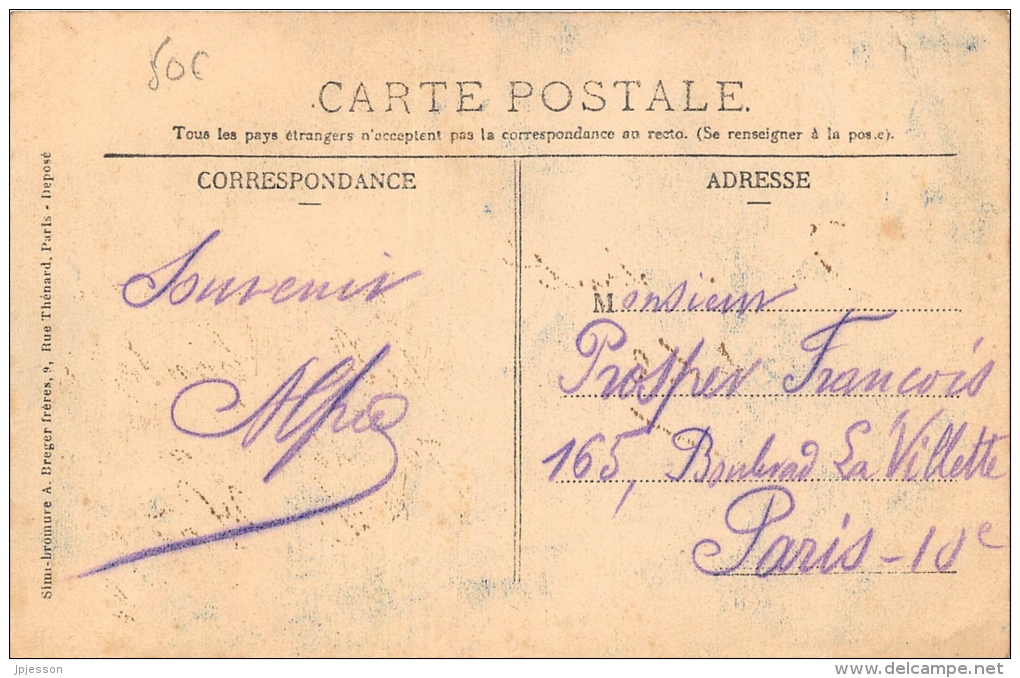 50€
CARTE POSTALE.
Tous les pays étrangers n'acceptent pas la correspondance au recto. (Se renseigner à la poste).
CORRESPONDANCE
ADRESSE
Souvenir
Monsieur
Prosper Francois
165, Boulevad La Villette
Paris - 10e
Simi-bromure A. Breger frères, 9, Rue Thénard, Paris - Déposé
jpjesson
www.delcampe.net